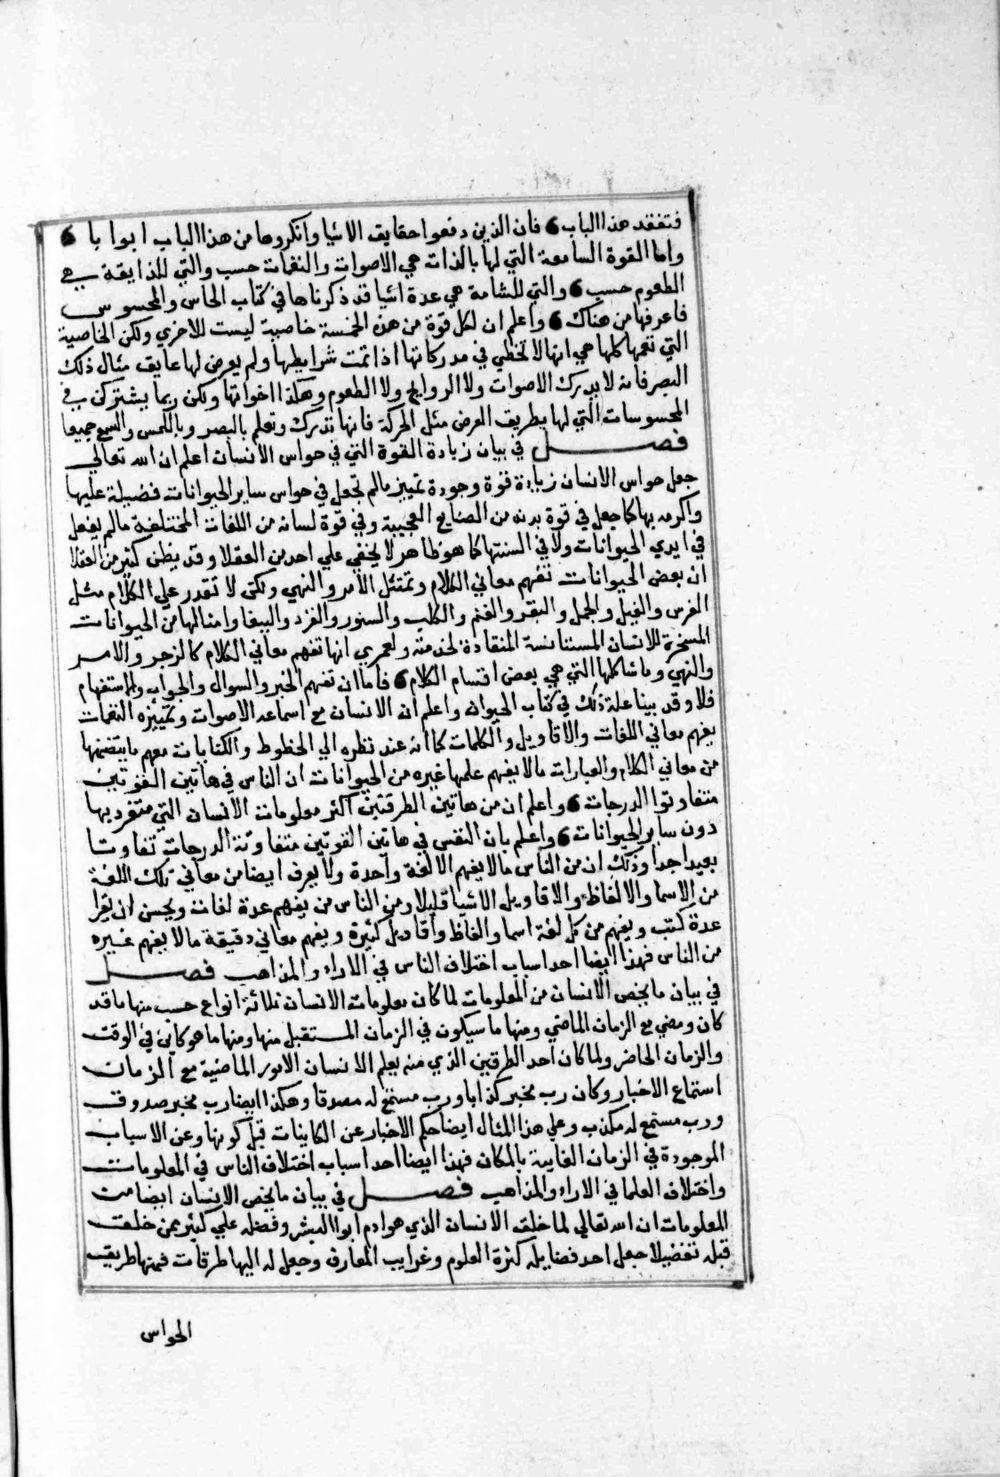 فتفقد هذا الباب 6 فان الذين دفعوا حقايق الاشيا وانكروها من هذا الباب ابوا با 6
واما القوة السامعة التي لها بالذات هي الاصوات والنغمات حسب والتي للذايقة هي
الطعوم حسب 6 والتي للشامة هي عدة اشيا قد ذكرناها في كتاب الحاس والمحسوس
فاعرفها من هناك 6 واعلم ان لكل قوة من هذه الخمسة خاصية ليست للاخري ولكن الخاصية
التي تعمها كلها هي انها لا تخطي في مدركاتها اذا تمت شرايطها ولم يعرض لها عايق مثال ذلك
البصر فانه لا يدرك الاصوات ولا الروايح ولا الطعوم وهكذا اخواتها ولكن ربما يشتركن في
المحسوسات التي لها بطريق العرض مثل الحركة فانها تدرك وتعلم بالبصر وباللمس والسمع جميعا
فصل في بيان زيادة القوة التي في حواس الانسان اعلم ان الله تعالي
جعل حواس الانسان زيادة قوة وجودة تمييز مالم تجعل في حواس ساير الحيوانات فضيلة عليها
واكرمه بها كما جعل في قوة بدنه من الصنايع العجيبة وفي قوة لسانه من اللغات المختلفة مالم يفعل
في ايدي الحيوانات ولا في السنتها كما هو ظاهر لا يخفي علي احد من العقلا وقد يظن كثير من العقلا
ان بعض الحيوانات تفهم معاني الكلام وتمتثل الامر والنهي ولكن لا تقدر علي الكلام مثل
الفرس والفيل والجمل والبقر والغنم والكلب والسنور والقرد والببغا وامثالها من الحيوانات
المسخرة للانسان المستانسة المنقادة لخدمته ولعمري انها تفهم معاني الكلام كالزجر والامر
والنهي وما شاكلها التي هي بعض اقسام الكلام 6 فاما ان تفهم الخبر والسوال والجواب والاستفهام
فلا وقد بينا علة ذلك في كتاب الحيوان واعلم ان الانسان مع اسماعه الاصوات وتمييزه النغمات
يفهم معاني اللغات والاقاويل والكلمات كما انه عند نظره الي الخطوط والكتابات يفهم ما يتضمنها
من معاني الكلام والعبارات مالا يفهم علمها غيره من الحيوانات ان الناس في هاتين القوتين
متفاوتوا الدرجات 6 واعلم ان من هاتين الطرقتين اكثر معلومات الانسان التي متفرد بها
دون ساير الحيوانات 6 واعلم بان النفس في هاتين القوتين متفاوتة الدرجات تفاوتا
بعيدا جدا وذلك ان من الناس مالا يفهم الا لغة واحدة ولا يعرف ايضا من معاني تلك اللغة
من الاسما والالفاظ والاقاويل الا شيا قليلا ومن الناس من يفهم عدة لغات ويحسن ان يقرا
عدة كتب ويفهم من كل لغة اسما والفاظ واقاويل كثيرة ويفهم معاني دقيقة مالا يفهم غيره
من الناس فهذا ايضا احد اسباب اختلاف الناس في الاراء والمذاهب فصل
في بيان ما يخص الانسان من المعلومات لما كان معلومات الانسان ثلاثة انواع حسب منها ما قد
كان ومضي مع الزمان الماضي ومنها ما سيكون في الزمان المستقبل منها ومنها ما هو كاين في الوقت
والزمان الحاضر ولما كان احد الطرقين الذي منه يعلم الانسان الامور الماضية مع الزمان
استماع الاخبار وكان رب مخبر كذابا ورب مستمع له مصدقا وهكذا ايضا رب مخبر صدوق
ورب مستمع له مكذب وعلي هذا المثال ايضا حكم الاخبار عن الكاينات قبل كونها وعن الاسباب
الموجودة في الزمان الغايبة بالمكان فهذا ايضا احد اسباب اختلاف الناس في المعلومات
واختلاف العلما في الاراء والمذاهب فصل في بيان ما يخص الانسان ايضا من
المعلومات ان الله تعالي لما خلق الانسان الذي هو ادم ابوا البشر وفضله علي كثير ممن خلقت
قبله تفضيلا جعل احد فضايله كثرة العلوم وغرايب المعارف وجعل له اليها طرقات فمنها طريق
الحواس